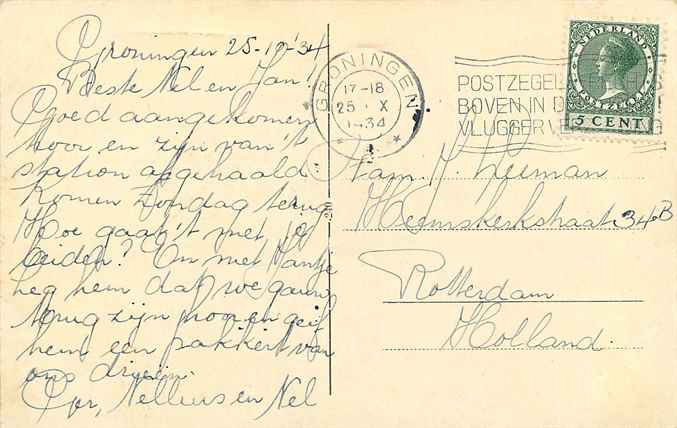 Groningen 25-10-'34
Beste Nel en Jan!
Goed aangekomen
hoor en zijn van't
station afgehaald.
Komen Zondag terug
Hoe gaat't met je
beiden? En met Jantje
zeg hem dat we gauw
terug zijn hoor en geif
hem een pakkert van
ons drieën.
Gr, Nellus en Nel
GRONINGEN
17-18
25 X
1934
POSTZEGEL
BOVEN IN D
VLUGGER V
NEDERLAND
POSTZEGEL
5 CENT
Fam. J.
Heemskerkstraat 34B
Rotterdam
Holland.